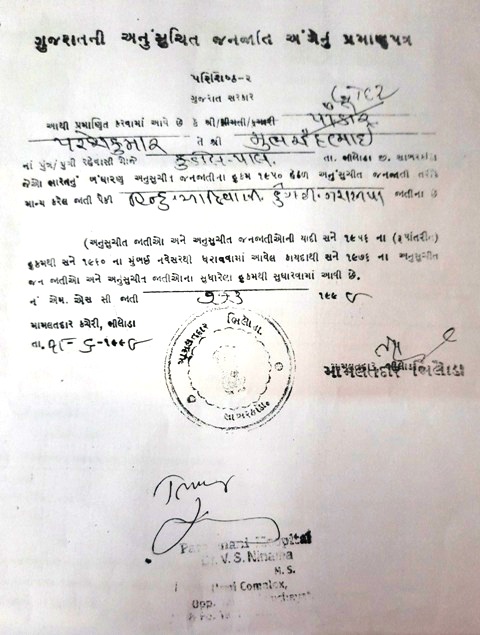 ગુજરાતની અનુસુચિત જનજાતિ અંગેનું પ્રમાણપત્ર
પરિશિષ્ઠ-૨
ગુજરાત સરકાર
આથી પ્રમાણિત કરવામાં આવે છે કે શ્રી/શ્રીમતી/કુમારી
પરેશકુમાર તે શ્રી મુળચંદભાઇ
નાં પુત્ર/પુત્રી રહેવાસી ગામે તા. ભીલોડા જી. સાબરકાંઠા
જેઓ ભારતનું બંધારણ અનુસુચિત જનજાતીના હુકમ ૧૯૫૦ હેઠળ અનુસુચિત જનજાતી તરીકે
માન્ય કરેલ જાતી પૈકી હિન્દુ આદિવાસી ડુંગરી ગરાસીયા જાતીના છે
(અનુસુચીત જાતીઓ અને અનુસુચીત જનજાતીઓની યાદી સને ૧૯૫૬ ના (રૂપાંતરીત)
હુકમથી સને ૧૯૬૦ ના મુંબઈ નવેસરથી ધરાવવામાં આવેલ કાયદાથી સને ૧૯૭૬ ના અનુસુચીત
જન જાતીઓ અને અનુસુચીત જાતીઓના સુધારેલા હુકમથી સુધારવામાં આવી છે.
નં એમ. એસ સી જાતી ૧૯૯
મામલતદાર કચેરી, ભીલોડા
તા.
મામલતદાર ભિલોડા
સાબરકાંઠા
મામલતદાર ભીલોડા
મામલતદાર ભિલોડા
Hospital
Dr. V. S. Ninama
M. S.
Complex,
Opp.